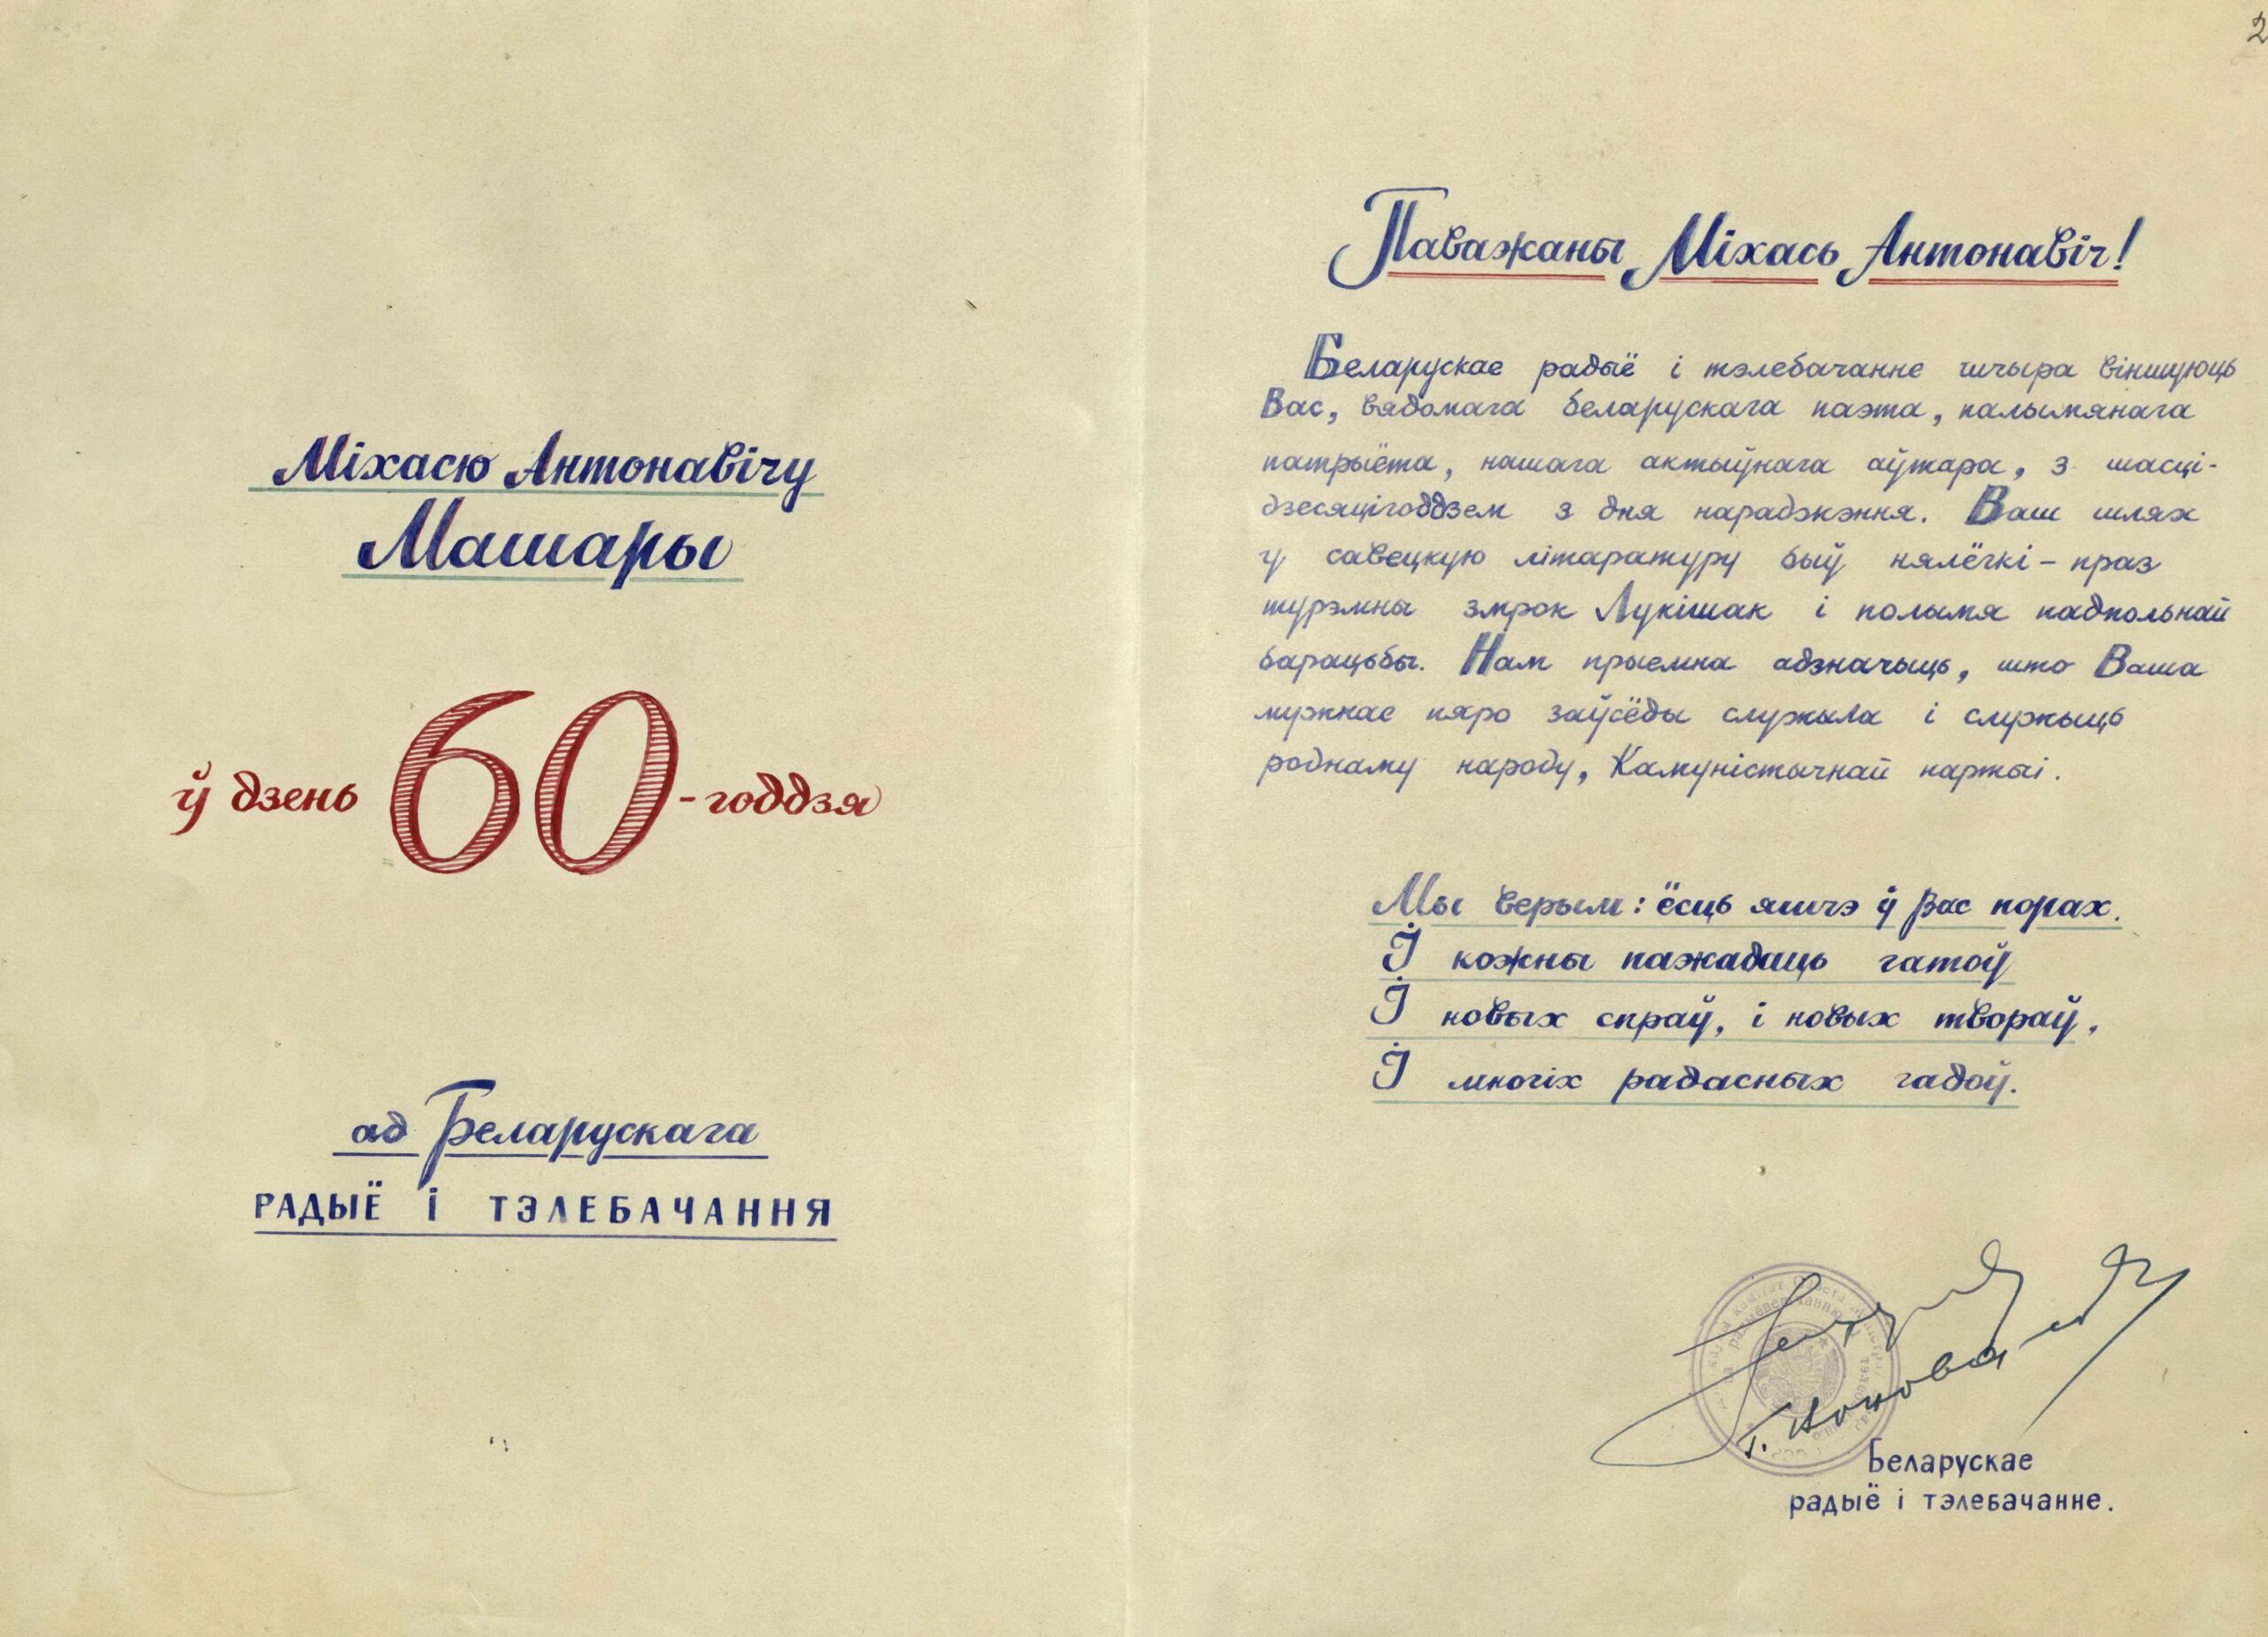 Міхасю Антонавічу
Машары
ў дзень 60-годдзя
ад Беларускага
РАДЫЁ І ТЭЛЕБАЧАННЯ
2
Паважаны Міхась Антонавіч!
Беларускае радыё і тэлебачанне шчыра віншуюць
Вас, вядомага беларускага паэта, палымянага
патрыёта, нашага актыўнага аўтара, з шасці-
дзесяцігоддзем з дня нараджэння. Ваш шлях
у савецкую літаратуру быў нялёгкі – праз
турэмны змрок Лукішак і полымя падпольнай
барацьбы. Нам прыемна адзначыць, што Ваша
мужнае пяро заўсёды служыла і служыць
роднаму народу, Камуністычнай партыі.
Мы верым: ёсць яшчэ ў Вас порах.
І кожны пажадаць гатоў
І новых спраў, і новых твораў,
І многіх радасных гадоў.
Беларускае
радыё і тэлебачанне.